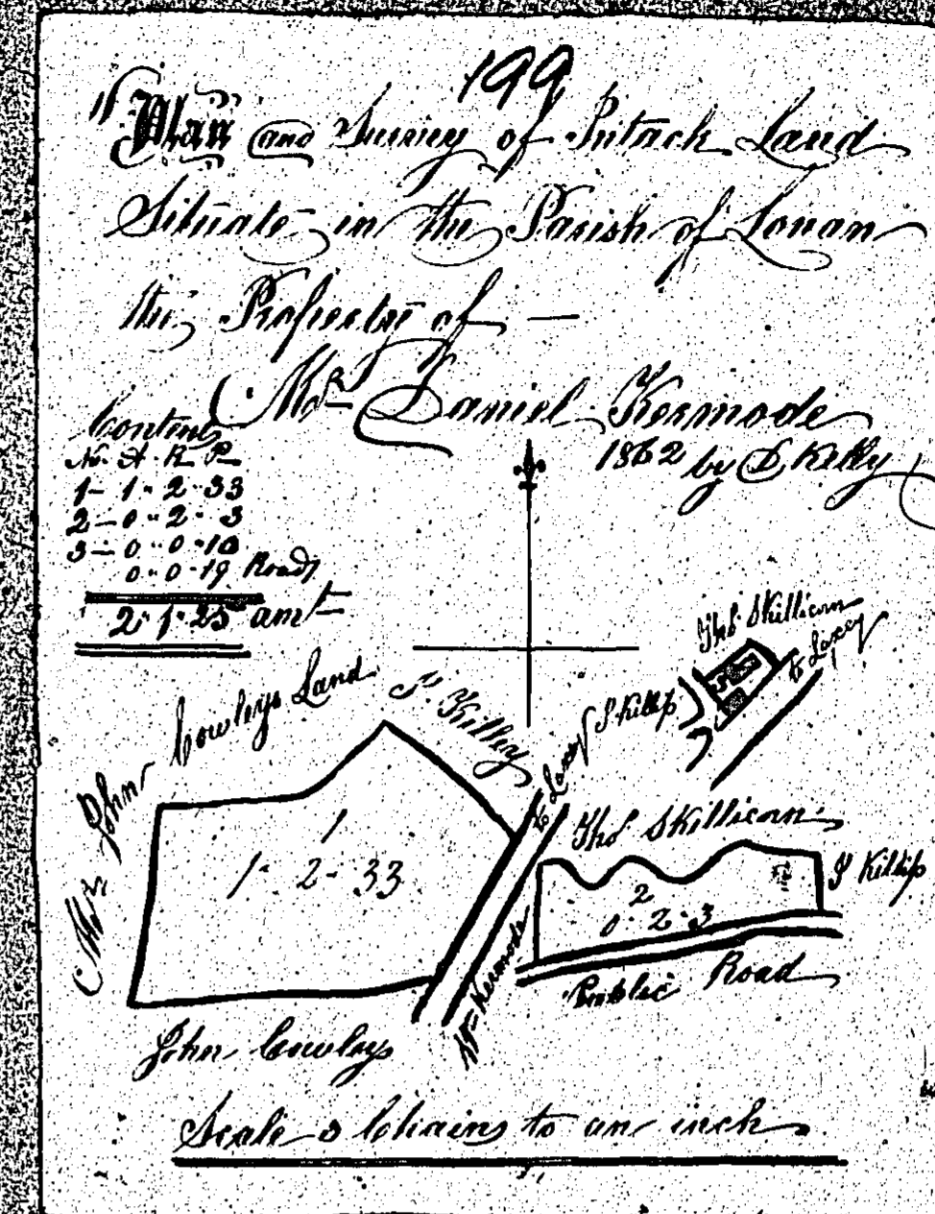 199
"Plan and Survey of Intack Land
Situate in the Parish of Lonan
the Property of —
Mr Daniel Kermode
1862 by D Kelly
Contents
No. A. R. P.
1 - 1 - 2 - 33
2 - 0 - 2 - 3
3 - 0 - 0 - 10
0 - 0 - 19 Roads
2 - 1 - 25 amt
Thos Skillicorn
to Laxey
Mr John Cowleys Land
J. Killey
to Laxey
S Killip
3
1
1 - 2 - 33
Thos Skillicorn
J Killip
2
0 - 2 - 3
Wm Kermode
Public Road
John Cowleys
Scale 3 Chains to an inch